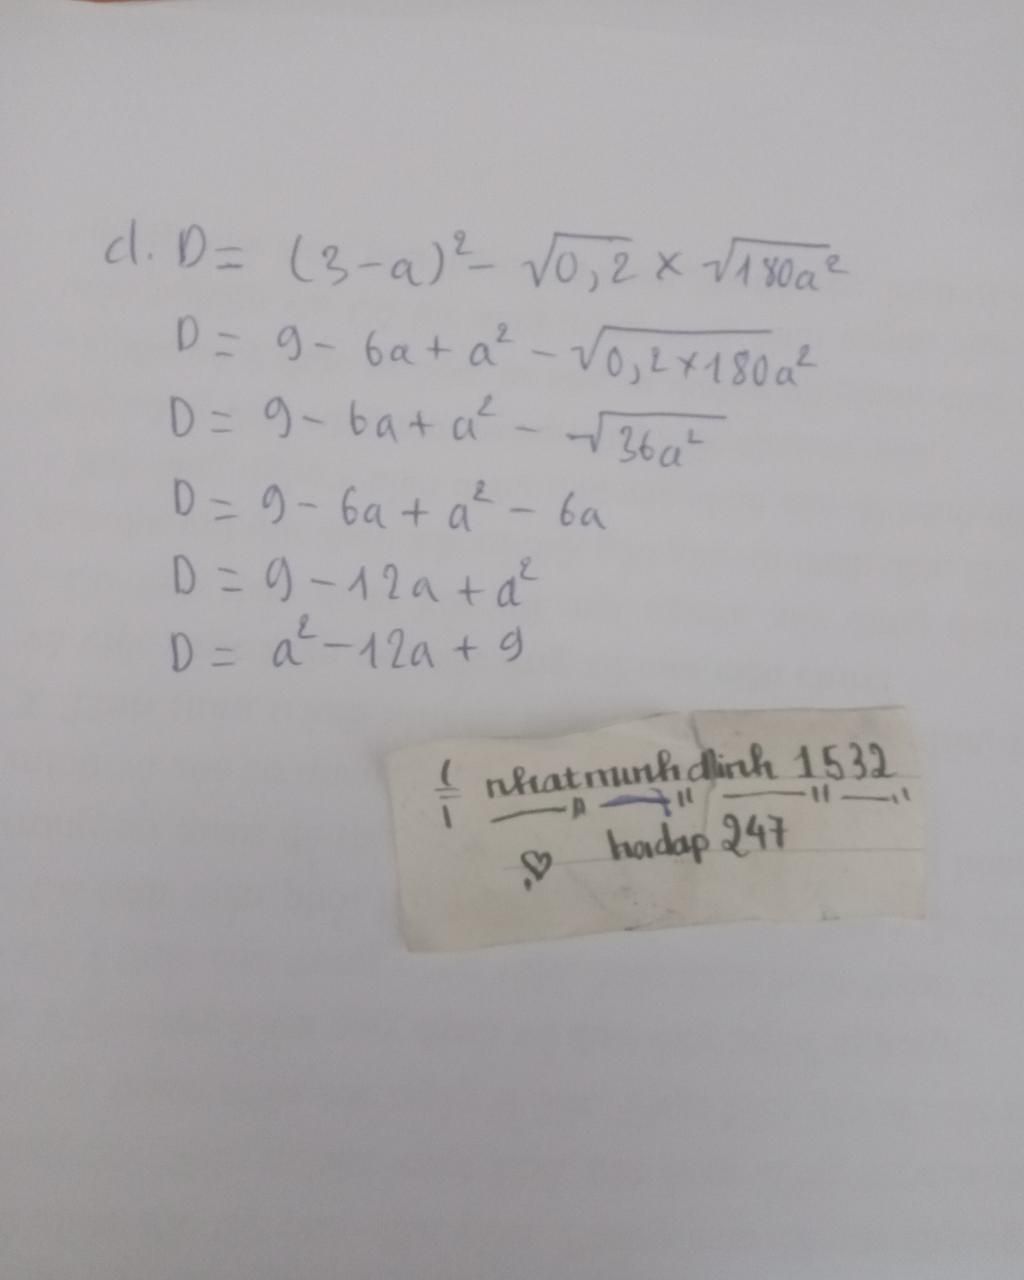 d. D = (3-a)² - √0,2 × √180a²
D = 9 - 6a + a² - √0,2×180a²
D = 9 - 6a + a² - √36a²
D = 9 - 6a + a² - 6a
D = 9 - 12a + a²
D = a² - 12a + 9
nhatminhdinh 1532
hoidap 247